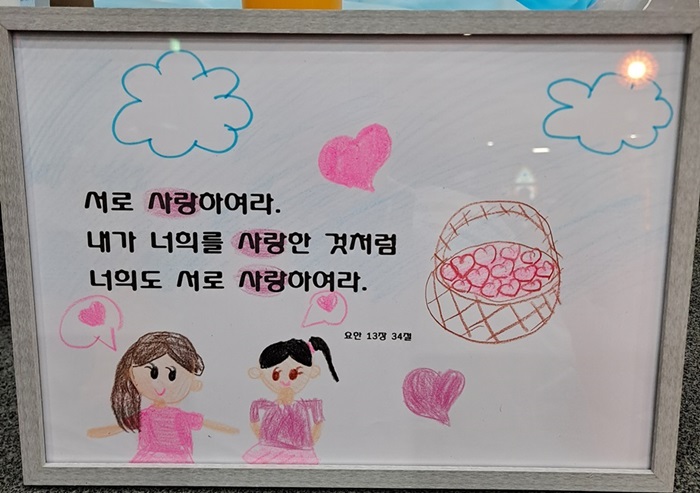 서로 사랑하여라.
내가 너희를 사랑한 것처럼
너희도 서로 사랑하여라.
요한 13장 34절